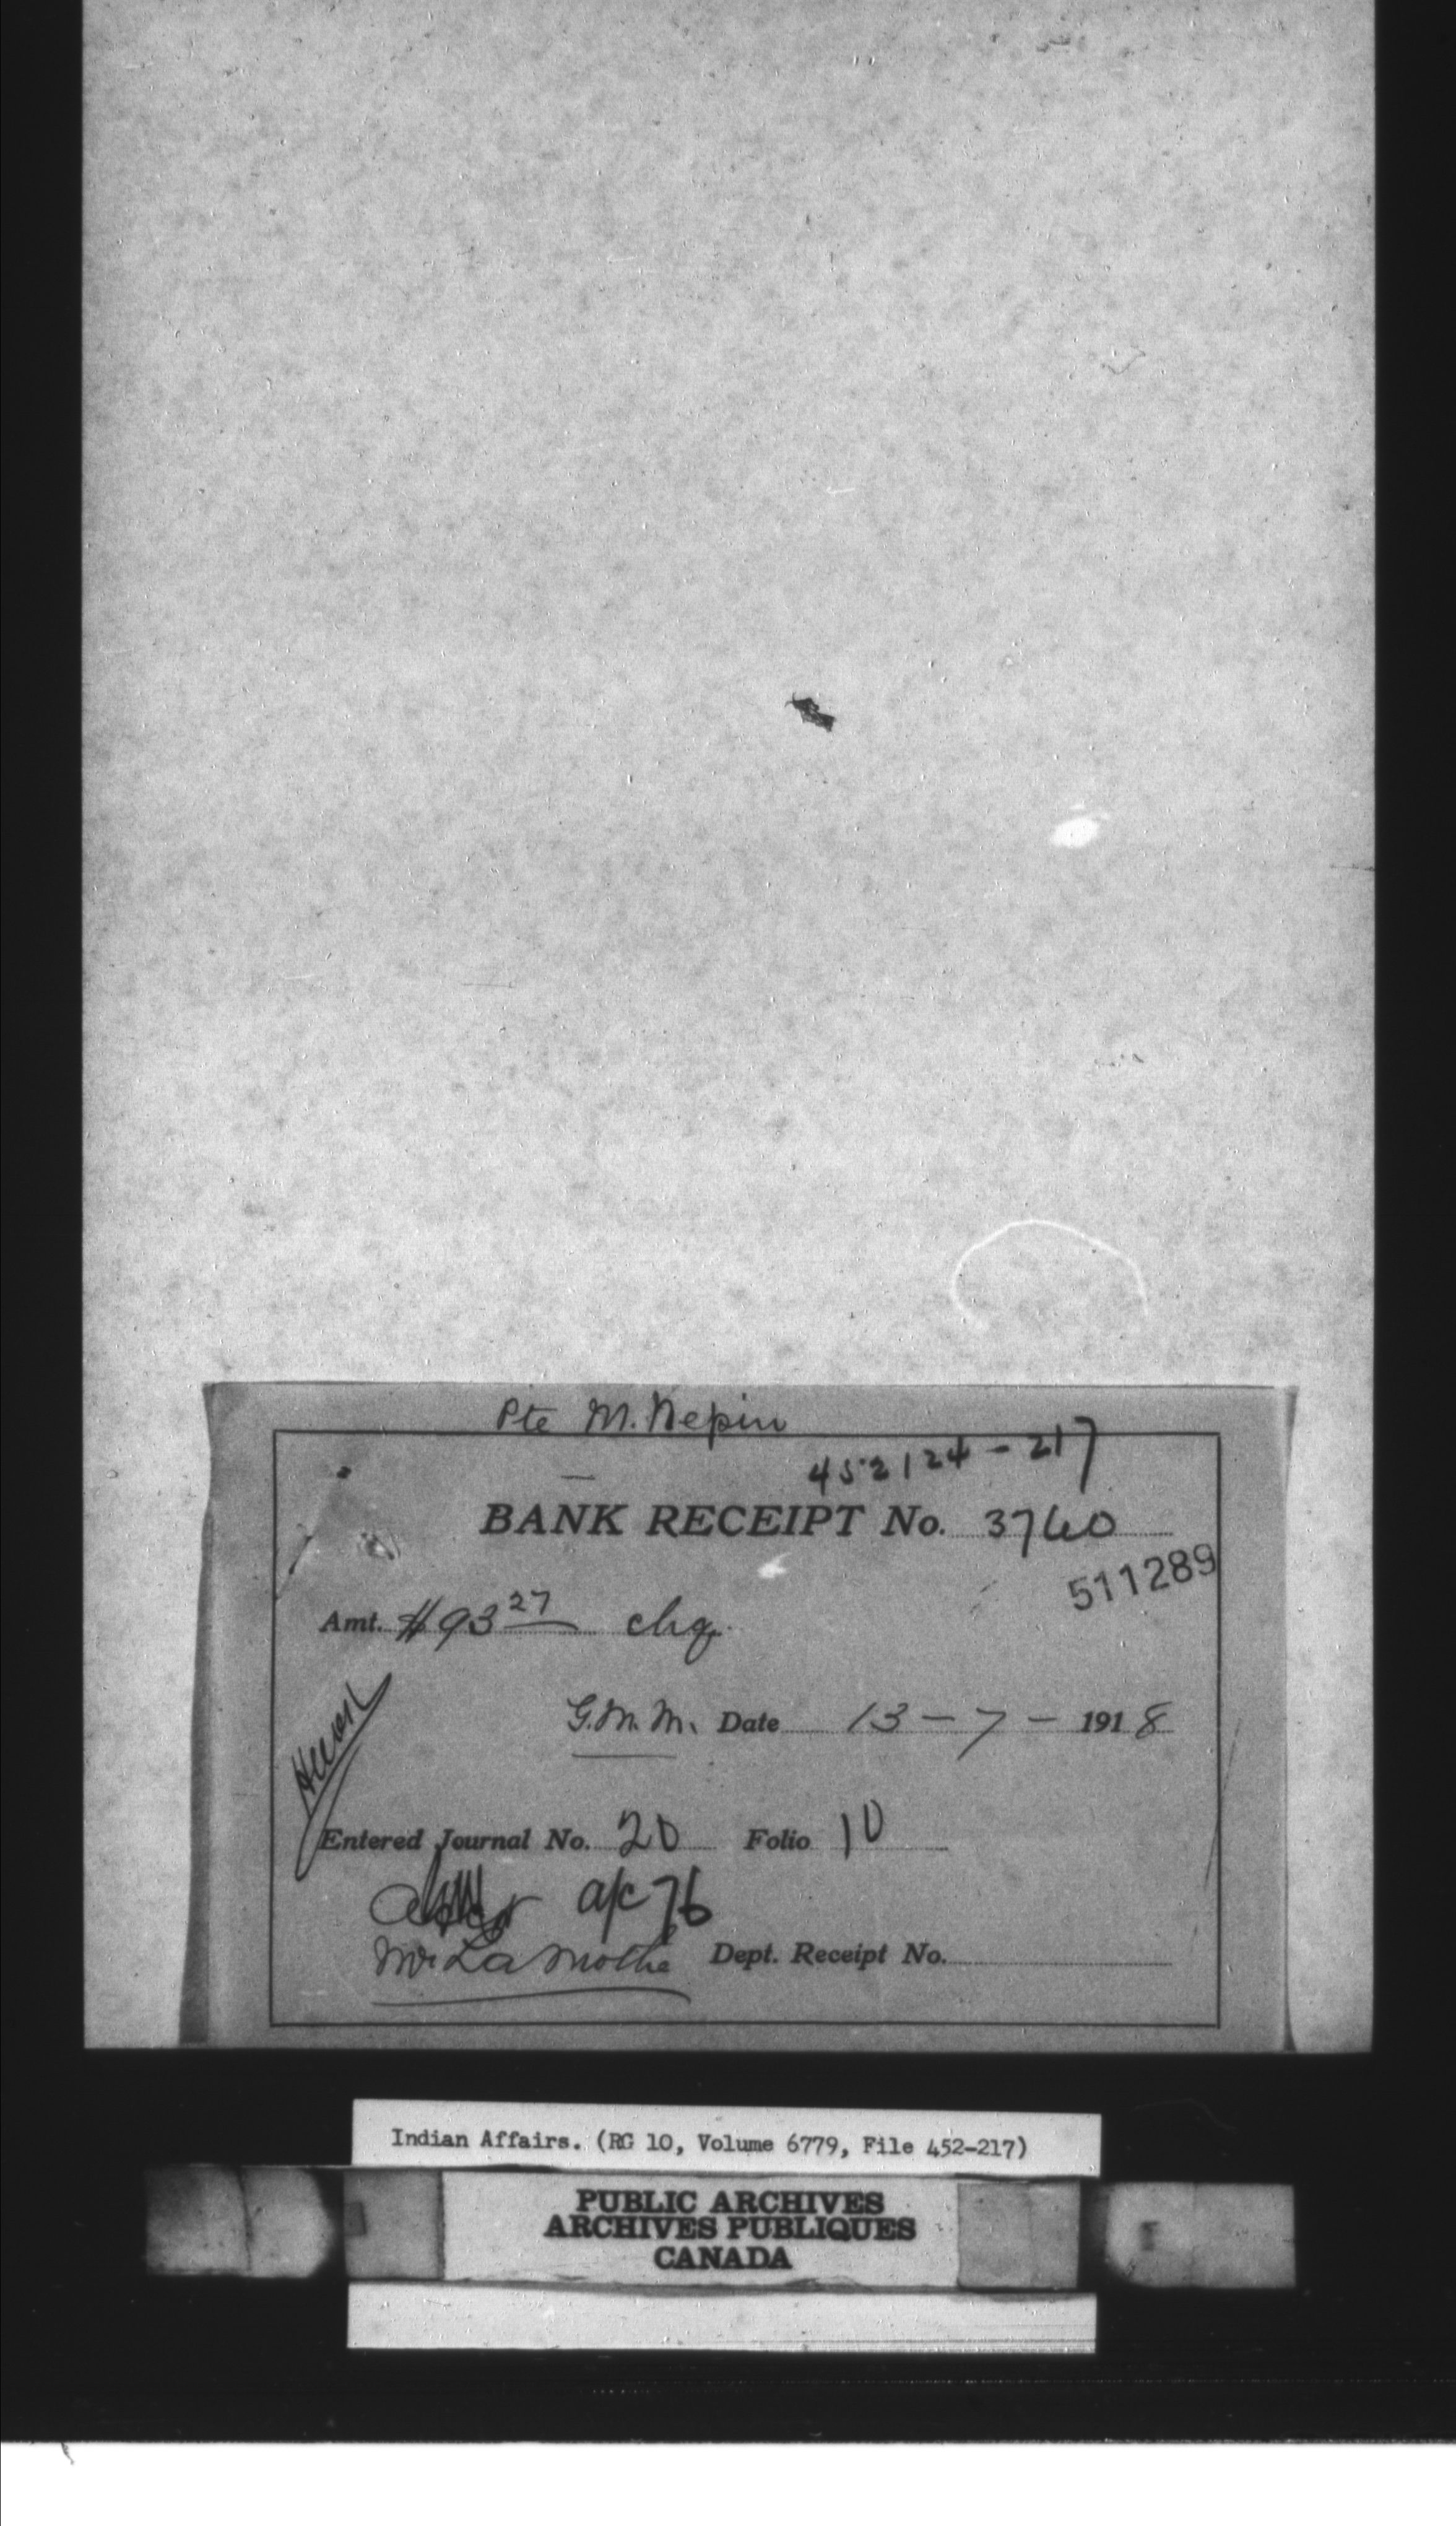 Pte M. Nepin
452124-217
BANK RECEIPT No. 3760
511289
Amt. $93 27 chq.
G.M.M. Date 13-7-1918
Entered Journal No. 20 Folio 10
a/c 76
Mr LaMothe Dept. Receipt No.
Indian Affairs. (RG 10, Volume 6779, File 452-217)
PUBLIC ARCHIVES
ARCHIVES PUBLIQUES
CANADA